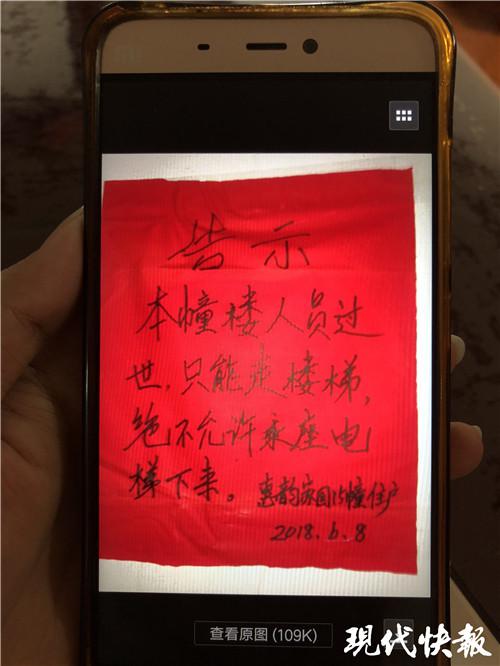 告示
本幢楼人员过
世,只能走楼梯,
绝不允许乘座电
梯下来。
惠韵家园15幢住户
2018.6.8
查看原图(109K)
现代快报